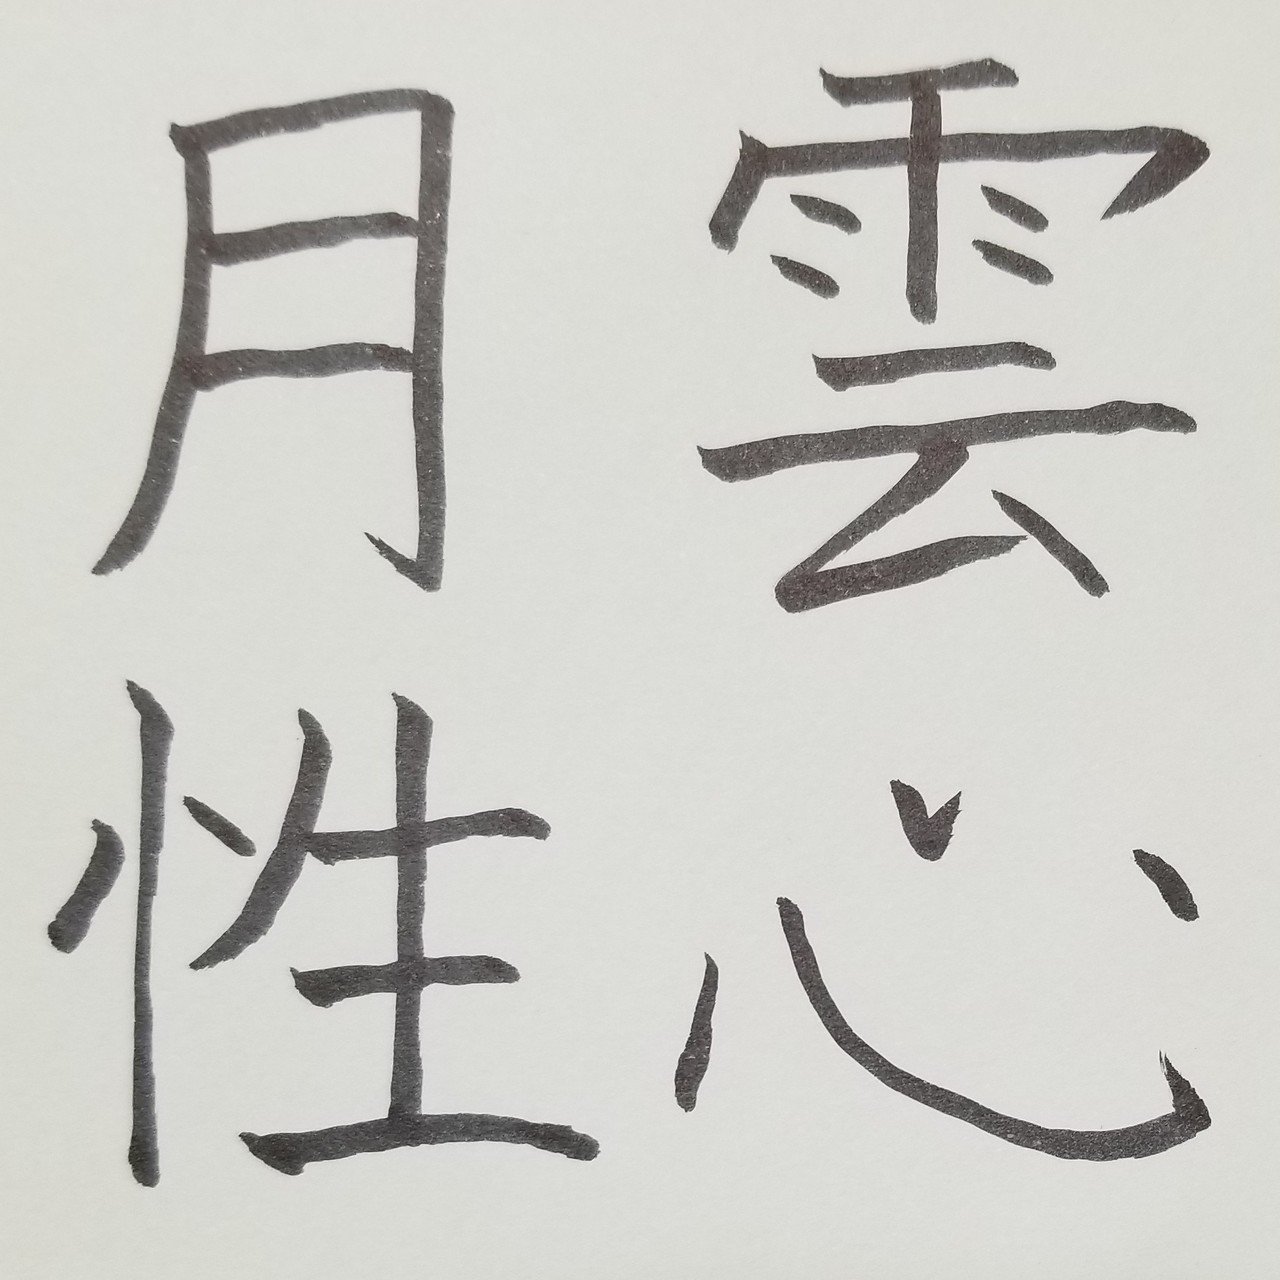 雲心
月性